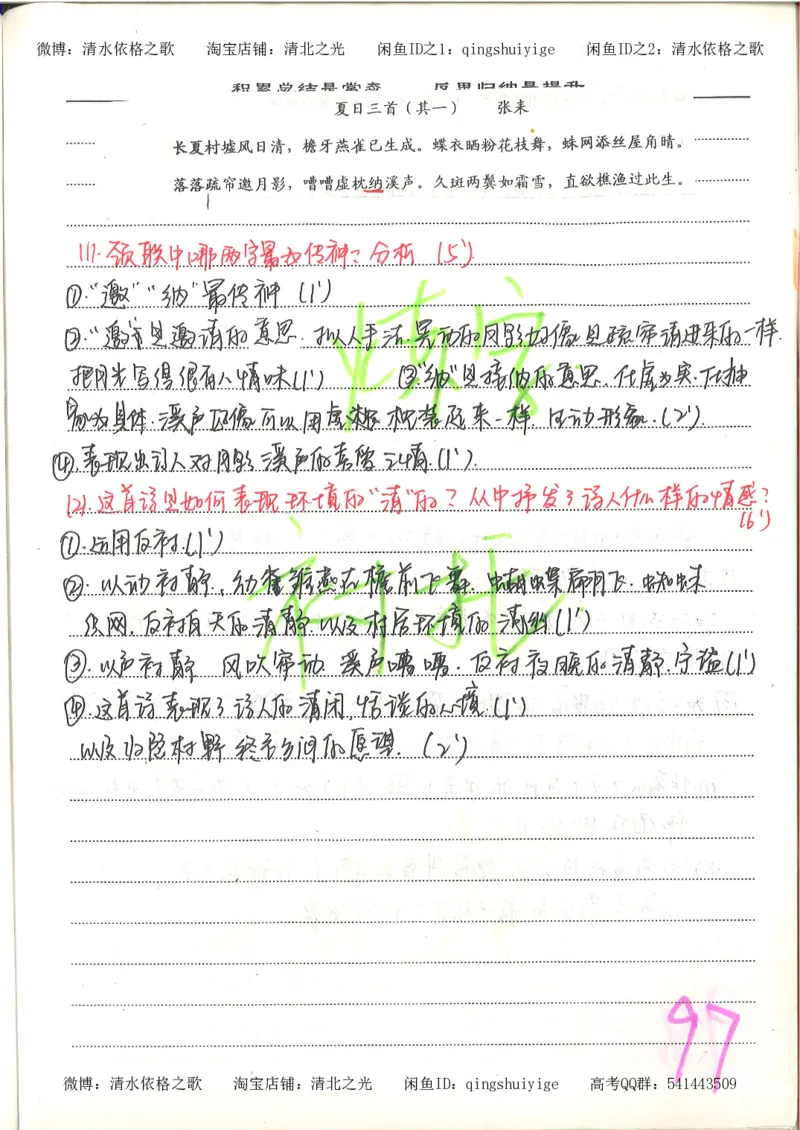 微博：清水依格之歌 淘宝店铺：清北之光 闲鱼ID之1：qingshuiyige 闲鱼ID之2：清水依格之歌
积累总结是常态 应思归纳是提升
夏日三首（其一） 张耒
长夏村墟风日清，檐牙燕雀已生成。蝶衣晒粉花枝舞，蛛网添丝屋角晴。
落落疏帘邀月影，嘈嘈虚枕纳溪声。久斑两鬓如霜雪，直欲樵渔过此生。
(1).颈联中哪两字最为传神？分析 (5')
①."邀""纳"最传神 (1')
②."邀"是邀请的意思.拟人手法.晃动的月影好像是疏帘请进来的一样.
把月光写得很有人情味(1') ③."纳"是接纳的意思.化虚为实.化抽
象为具体.溪声好像可以用虚枕装起来一样,生动形象.(2').
④.表现出诗人对月影 溪声的喜爱之情.(1').
(2).这首诗是如何表现环境的"清"的？从中抒发了诗人什么样的情感？
(6')
①.运用反衬.(1')
②.以动衬静.,幼雀雏燕在檐前飞舞.蝴蝶扇翅飞.蜘蛛
织网.反衬白天的清静.以及村居环境的清幽(1')
③.以声衬静 风吹帘动.溪声嘈嘈.反衬夜晚的清静.宁谧(1')
④.这首诗表现了诗人的清闲,恬淡的心境.(1')
以及归隐村野 终老乡间的愿望.(2')
炼字
衬托
97
微博：清水依格之歌 淘宝店铺：清北之光 闲鱼ID：qingshuiyige 高考QQ群：541443509